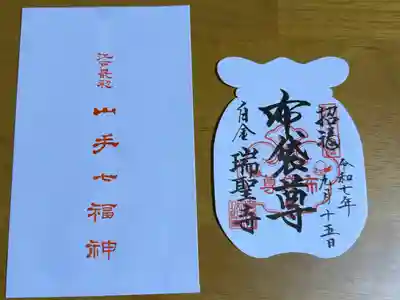 江戸最初
山手七福神
招福
令和七年
九月十五日
布袋尊
白金
瑞聖寺